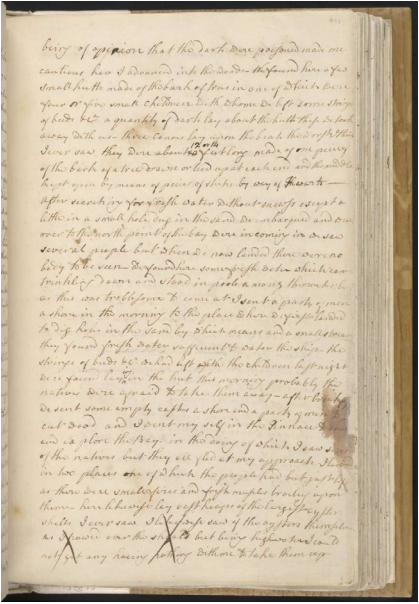 being of opinion that the darts were poisoned made me
cautious how I advanced into the woods We found here a few
small hutts made of the bark of trees in one of which were
four or five small children with whome we left some strings
of beeds &c a quantity of darts lay about the hutts these we took
away with us three Canoes lay upon the beach the worst I think
I ever saw they were about 12 or 14 feet long made of one peice
of the bark of a tree drawn or tied up at each end and the middle
kept open by means of peices of sticks by way of Thwarts
After searching for fresh water without success except a
little in a small hole dug in the sand we embarqued and went
over to the north point of the bay were in coming in we saw
several people but when we now landed there were no
body to be seen We found here some fresh water which came
trinkling down and stood in pools among the rocks but
as this was troblesome to come at I sent a party of men
a shore in the morning to the place where we first landed
to dig holes in the sand by which means and a small stream
they found fresh water sufficient to water the ship the
strings of beeds &c we had left with the children last night
were found in the hut this morning probably the
natives were afraid to take them away after breakfast
we sent some empty casks a shore and a party of men to
cut wood and I went my self in the Pinnace to
and explore the Bay in the doing of which I saw some
of the natives but they all fled at my approach I landed
in two places one of which the people had but just left
as there were small fires and fresh muscles broiling upon
them here likewise lay vast heaps of the largest oyster
shells I ever saw
as I
not get any having nothing with me to take them up